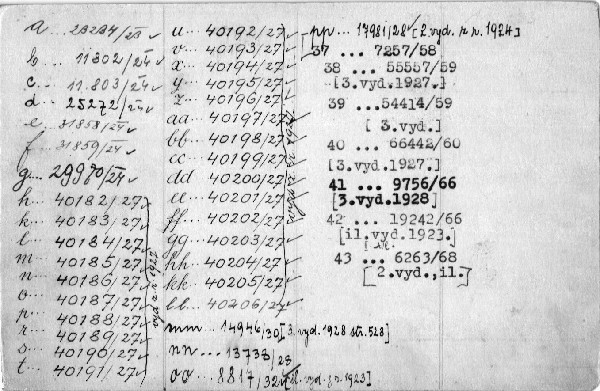 a ... 23234/23
b ... 11802/24
c ... 11.803/24
d ... 25272/24
e ... 31858/24
f ... 31859/24
g... 29980/24
h... 40182/27
k... 40183/27
l... 40184/27
m... 40185/27
n... 40186/27
o... 40187/27
p... 40188/27
r... 40189/27
s... 40190/27
t... 40191/27
vyd z r. 1927
u ... 40192/27
v... 40193/27
x... 40194/27
y... 40195/27
z... 40196/27
aa... 40197/27
bb... 40198/27
cc... 40199/27
dd... 40200/27
ee... 40201/27
ff... 40202/27
gg... 40203/27
hh... 40204/27
kk... 40205/27
ll... 40206/27
mm... 14946/30 [3. vyd. 1928 str. 528]
nn... 13738/28
oo... 8817/32 [il. vyd. z r. 1923]
pp... 17981/28 [2. vyd. z r. 1924]
37 ... 7257/58
38 ... 55557/59
[3.vyd.1927.]
39 ...54414/59
[ 3.vyd.]
40 ... 66442/60
[3.vyd.1927.]
41 ... 9756/66
[3.vyd.1928]
42 ... 19242/66
[il.vyd.1923.]
43 ... 6263/68
[2.vyd.,il.]